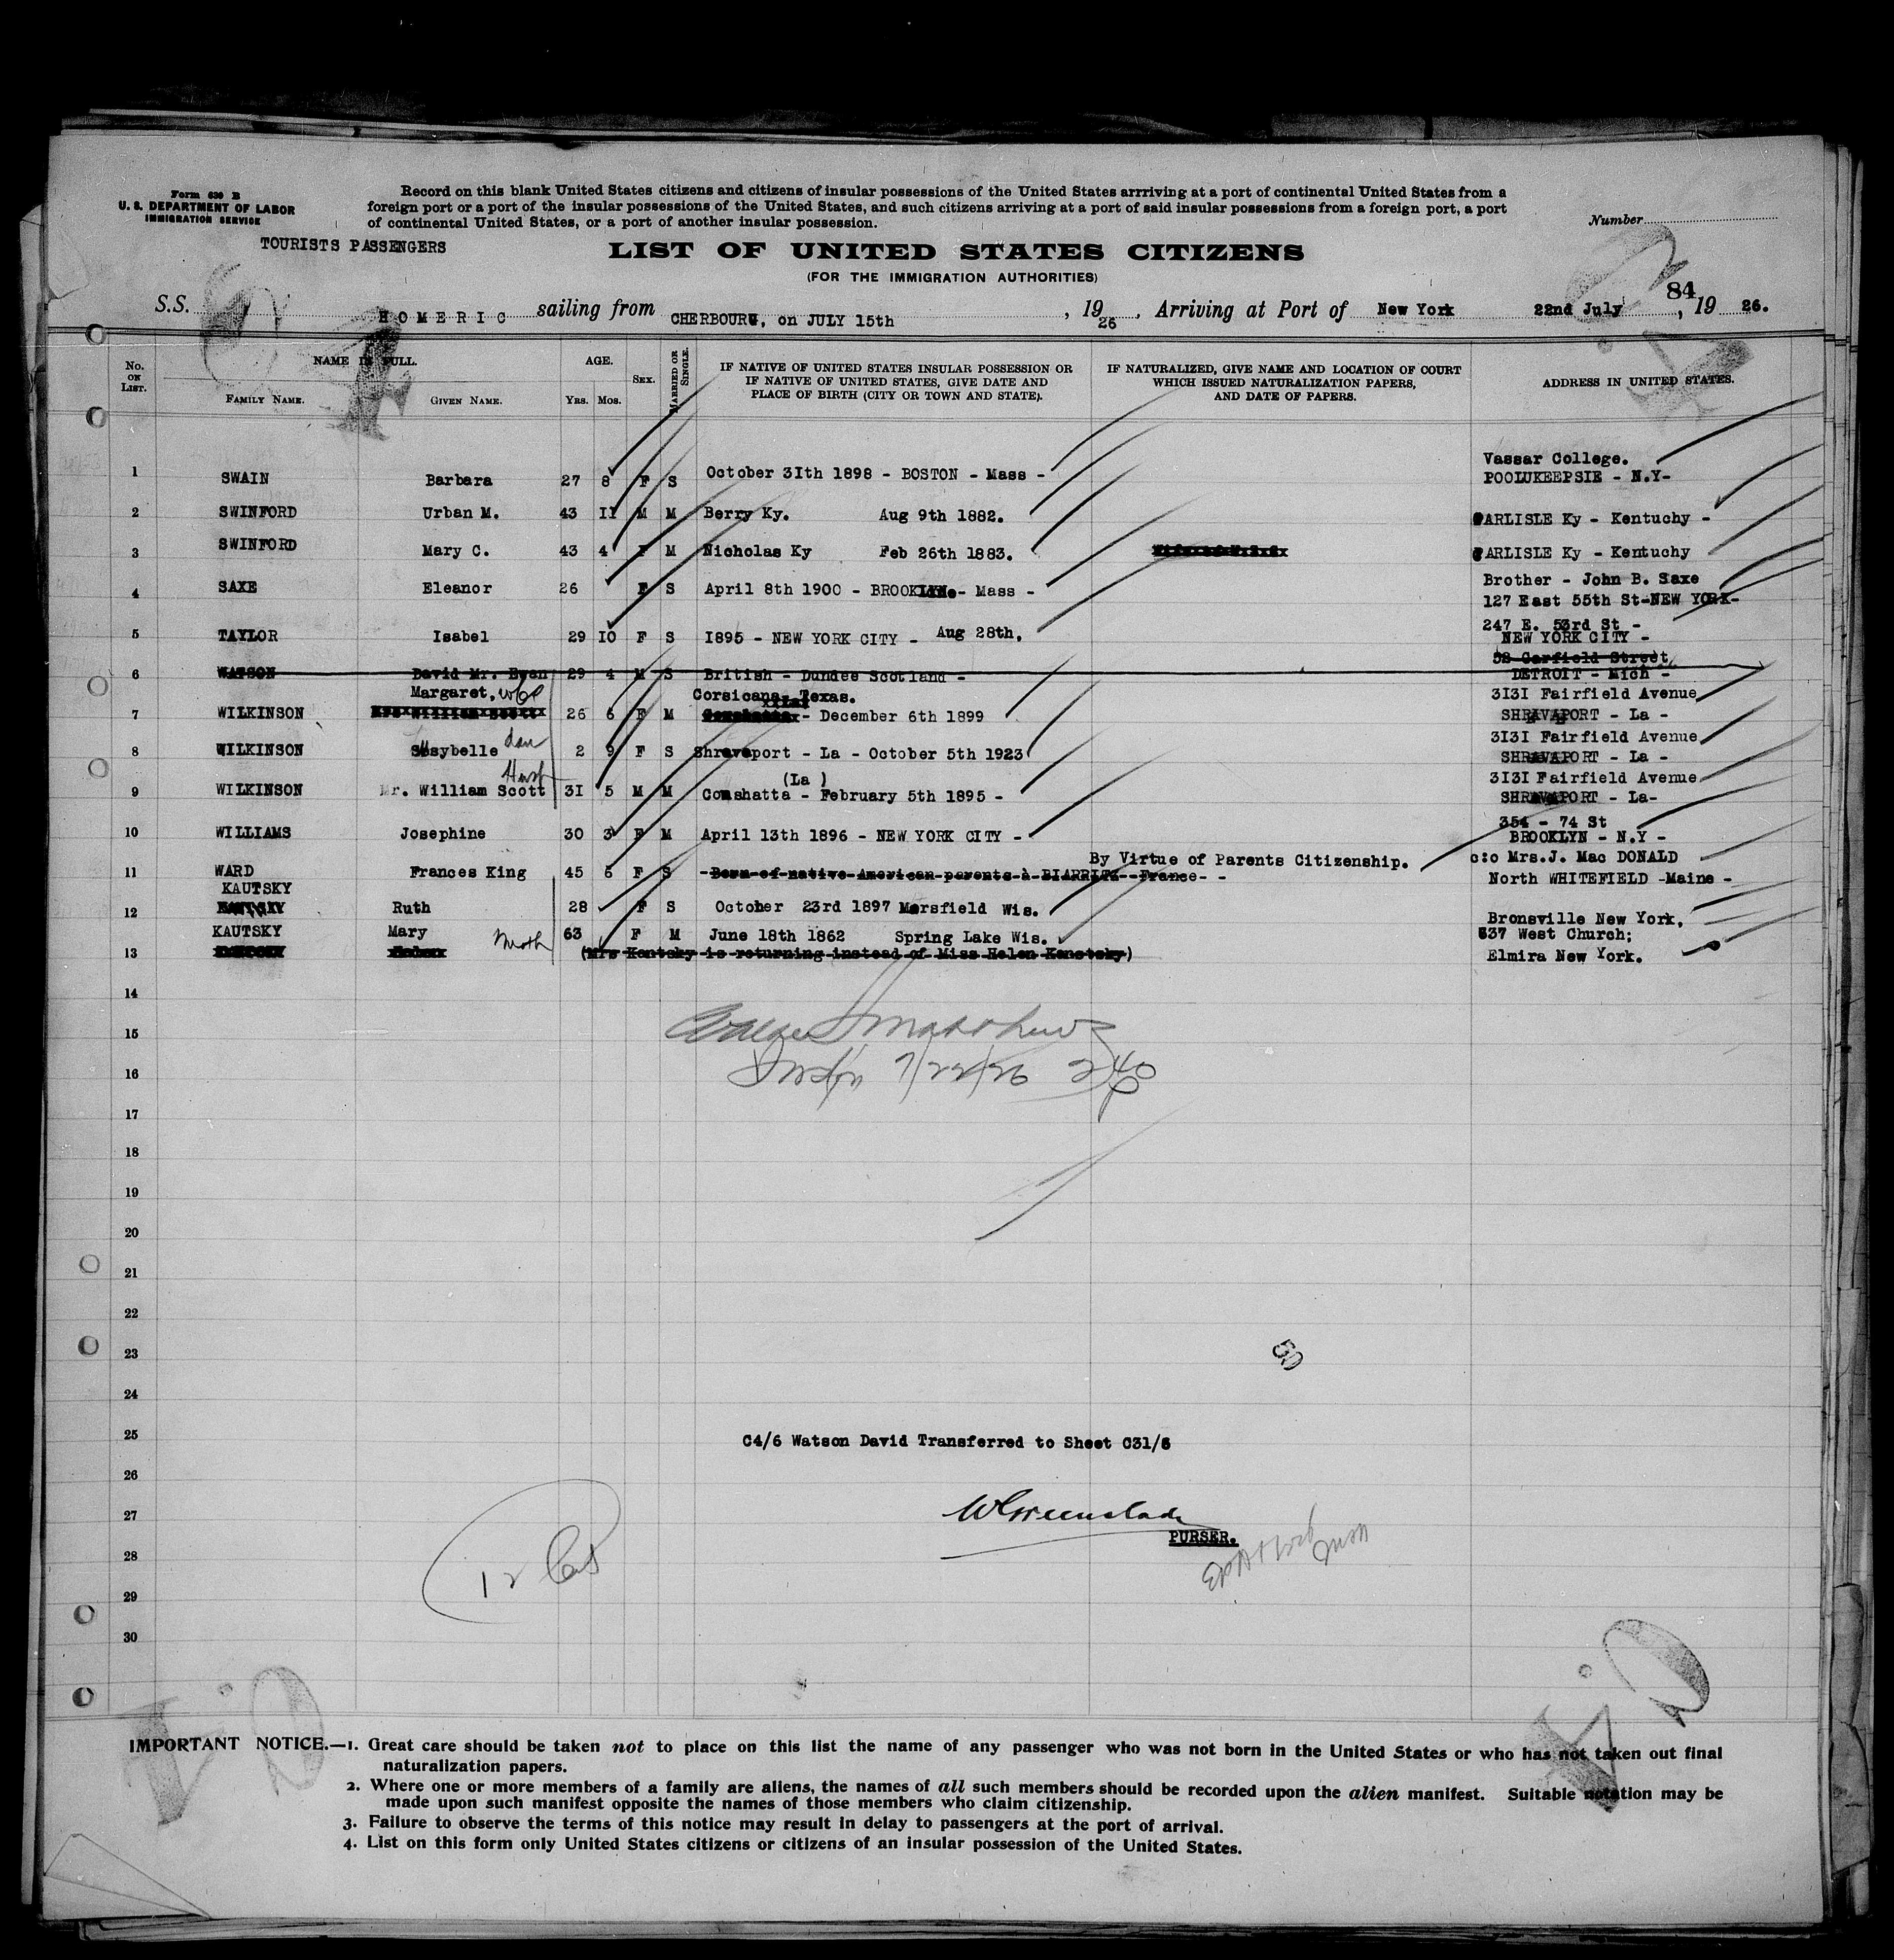 Form 630 B
U. S. DEPARTMENT OF LABOR
IMMIGRATION SERVICE
Record on this blank United States citizens and citizens of insular possessions of the United States arrriving at a port of continental United States from a
foreign port or a port of the insular possessions of the United States, and such citizens arriving at a port of said insular possessions from a foreign port, a port
of continental United States, or a port of another insular possession.
Number
TOURISTS PASSENGERS
LIST OF UNITED STATES CITIZENS
(FOR THE IMMIGRATION AUTHORITIES)
84
S.S. HOMERIC sailing from CHERBOURG, on JULY 15th , 19 26 , Arriving at Port of New York 22nd July , 19 26.
No. ON LIST.
NAME IN FULL.
FAMILY NAME. GIVEN NAME.
AGE.
YRS. MOS.
SEX.
MARRIED OR SINGLE.
IF NATIVE OF UNITED STATES INSULAR POSSESSION OR
IF NATIVE OF UNITED STATES, GIVE DATE AND
PLACE OF BIRTH (CITY OR TOWN AND STATE).
IF NATURALIZED, GIVE NAME AND LOCATION OF COURT
WHICH ISSUED NATURALIZATION PAPERS,
AND DATE OF PAPERS.
ADDRESS IN UNITED STATES.
Vassar College.
1 SWAIN Barbara 27 8 F S October 3Ith 1898 - BOSTON - Mass - POOLUKEEPSIE - N.Y-
2 SWINFORD Urban M. 43 II M M Berry Ky. Aug 9th 1882. CARLISLE Ky - Kentuchy -
3 SWINFORD Mary C. 43 4 F M Nicholas Ky Feb 26th 1883. CARLISLE Ky - Kentuchy
Brother - John B. Saxe
4 SAXE Eleanor 26 F S April 8th 1900 - BROOKLINe - Mass - 127 East 55th St-NEW YORK-
247 E. 53rd St -
5 TAYLOR Isabel 29 IO F S I895 - NEW YORK CITY - Aug 28th. NEW YORK CITY -
52 Garfield Street
6 WATSON David Mr. Byen 29 4 M S British - Dundee Scotland - DETROIT - Mich -
Margaret, wife Corsicana, Texas. 3I3I Fairfield Avenue
7 WILKINSON Mrs William Scott 26 6 F M Coushatta - December 6th 1899 SHRAVAPORT - La -
3I3I Fairfield Avenue
8 WILKINSON Susybelle dau 2 9 F S Shravaport - La - October 5th 1923 SHRAVAPORT - La -
Husb (La ) 3I3I Fairfield Avenue
9 WILKINSON Mr. William Scott 3I 5 M M Coushatta - February 5th 1895 - SHRAVAPORT - La-
354 - 74 St
10 WILLIAMS Josephine 30 3 F M April 13th 1896 - NEW YORK CITY - BROOKLYN - N.Y -
By Virtue of Parents Citizenship. c:o Mrs.J. Mac DONALD
11 WARD Frances King 45 6 F S - Born of native American parents à BIARRITZ - France - - North WHITEFIELD -Maine -
KAUTSKY
12 Ruth 28 F S October 23rd 1897 Marsfield Wis. Bronsville New York.
KAUTSKY Mary Moth 63 F M June 18th 1862 Spring Lake Wis. 537 West Church;
13 Helen (Mrs Kautsky is returning instead of Miss Helen Kautsky) Elmira New York.
14
15 Matthews
16 Insp 7/22/26 240
17
18
19
20
21
22
23 50
24
25 C4/6 Watson David Transferred to Sheet C31/6
26
27 WGreenslade
PURSER.
28 12
29
30
IMPORTANT NOTICE.—1. Great care should be taken not to place on this list the name of any passenger who was not born in the United States or who has not taken out final
naturalization papers.
2. Where one or more members of a family are aliens, the names of all such members should be recorded upon the alien manifest. Suitable notation may be
made upon such manifest opposite the names of those members who claim citizenship.
3. Failure to observe the terms of this notice may result in delay to passengers at the port of arrival.
4. List on this form only United States citizens or citizens of an insular possession of the United States.